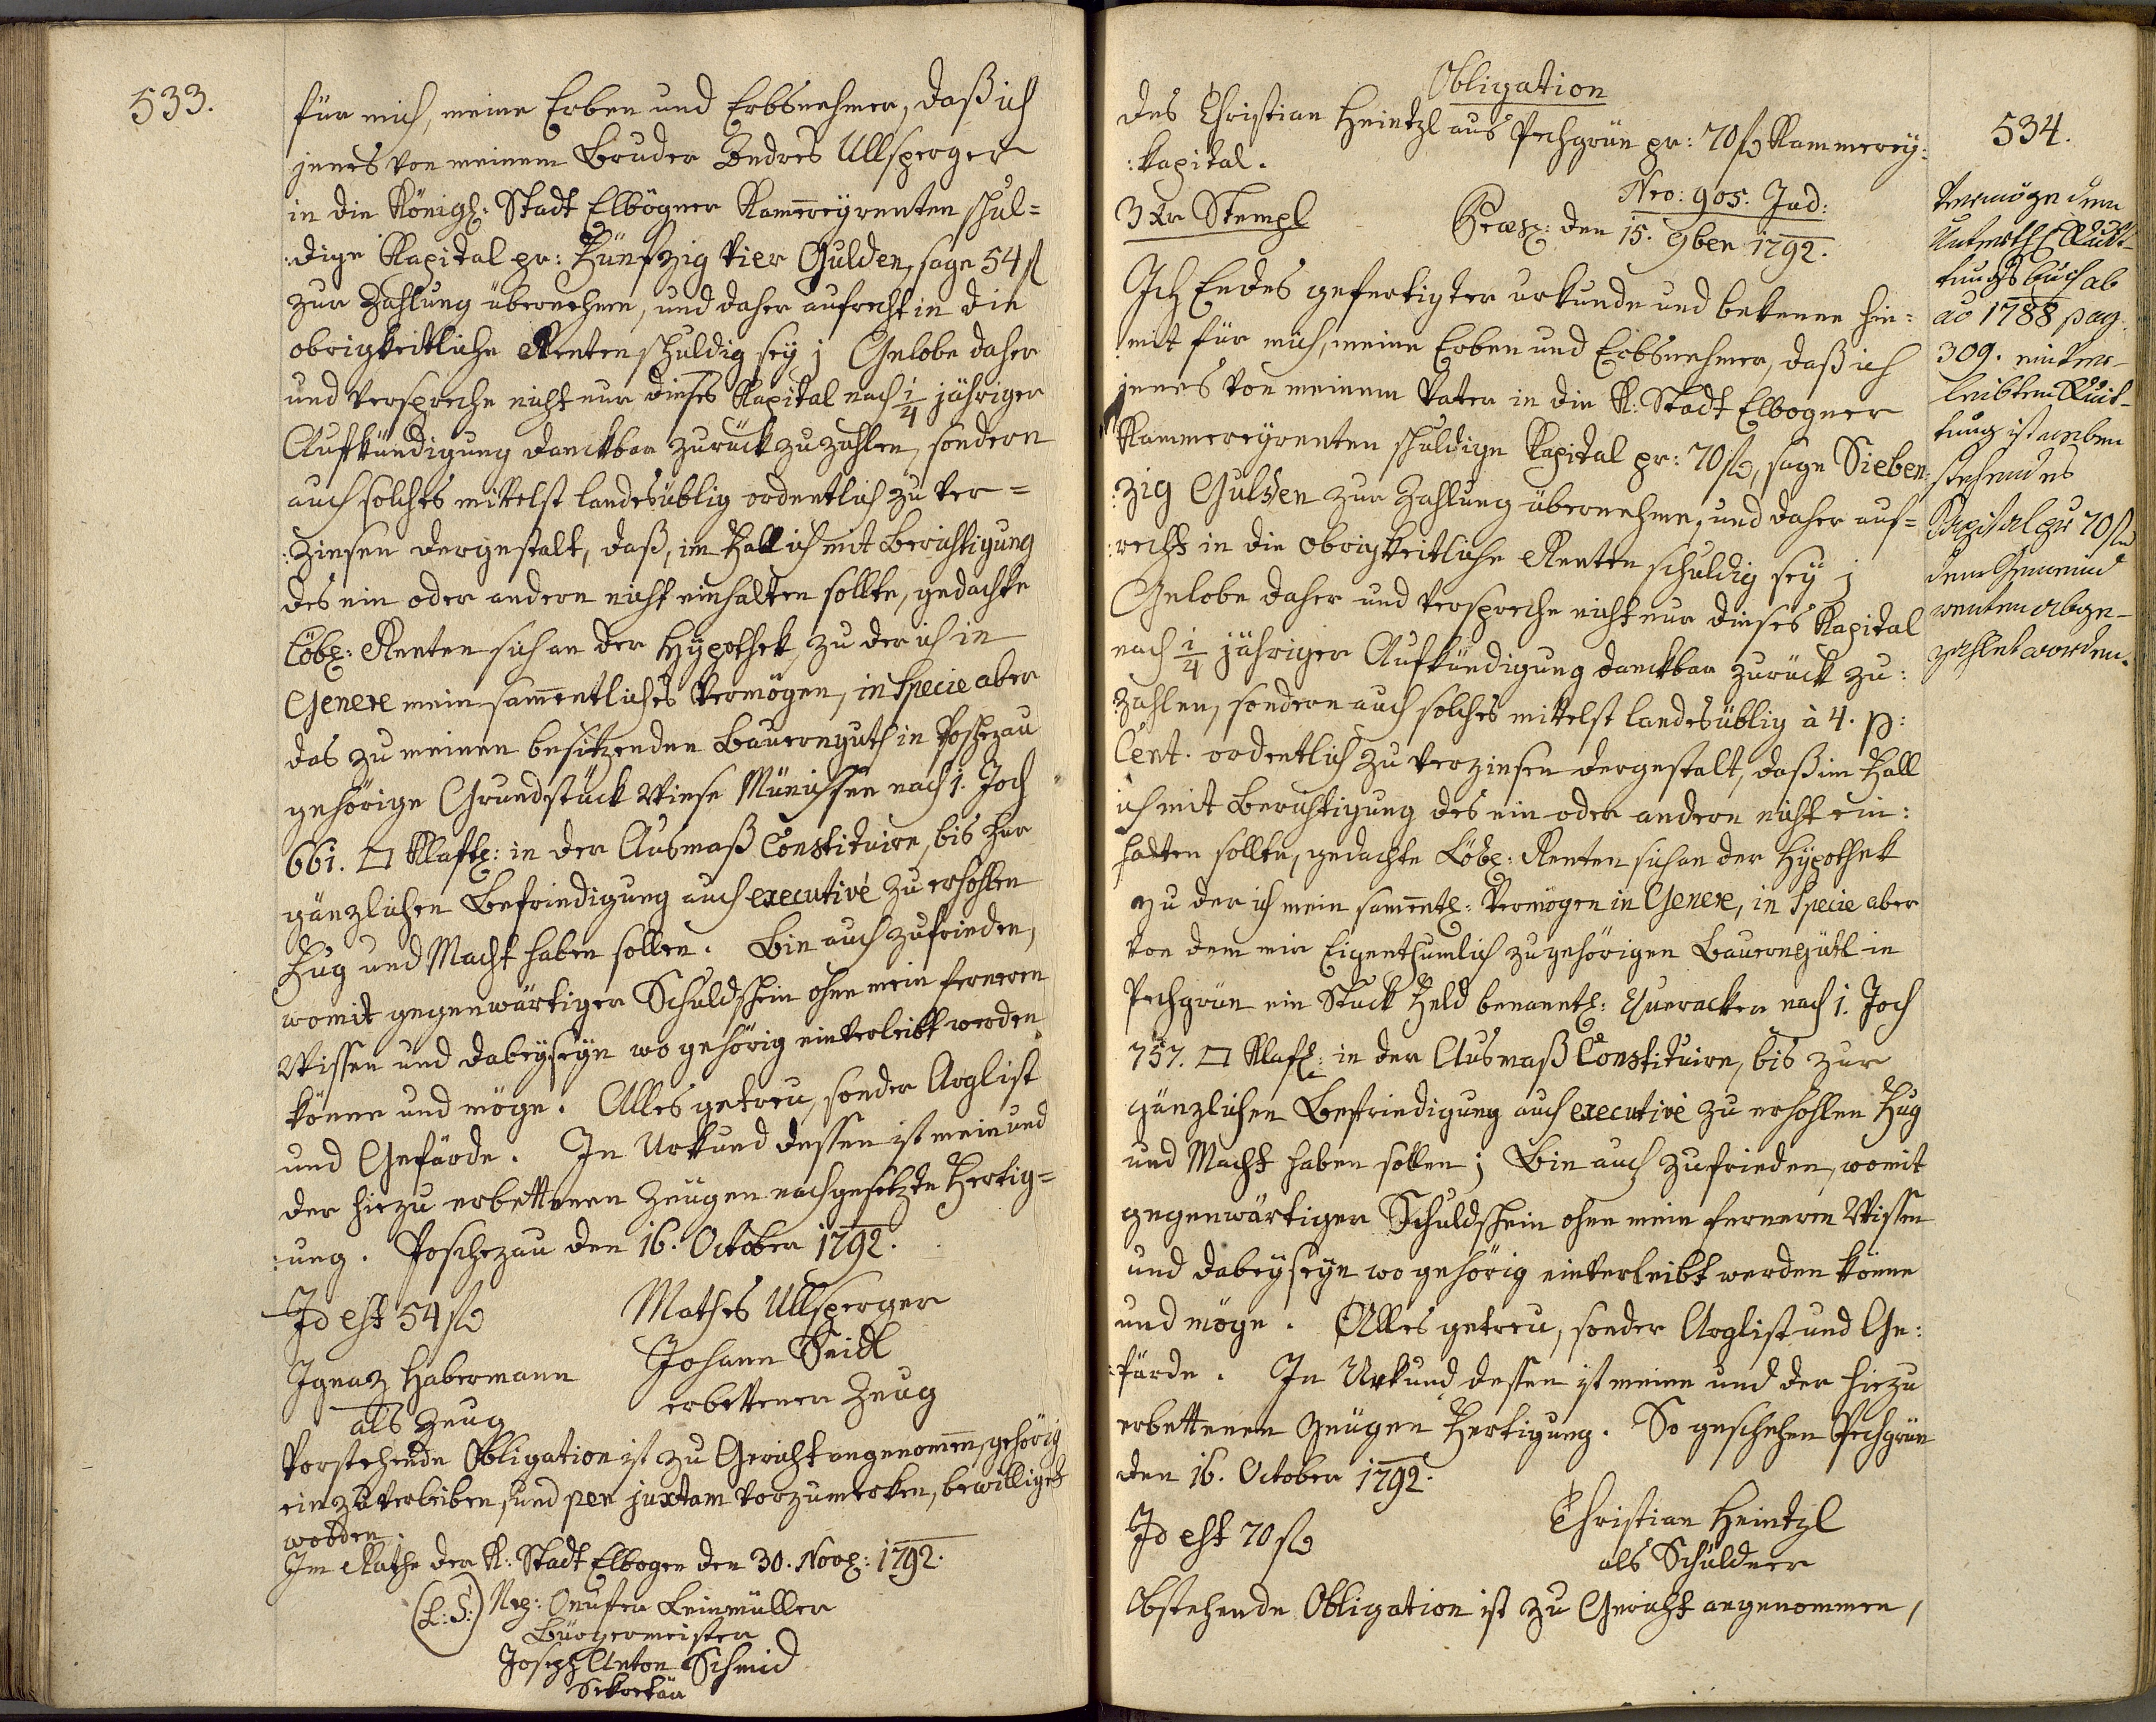 533.
für mich, meine Erben und Erbsnehmer, daß ich
jenes von meinem Bruder Andres Ullsperger
in die Königl: Stadt Elbögner Kammereyrenten schul=
:dige Kapital pr: Fünfzig vier Gulden, sage 54 fl
zur Zahlung übernehme, und daher aufrecht in die
obrigkeitliche Renten schuldig sey; Gelobe daher
und verspreche nicht nur dieses Kapital nach 1/4 jähriger
Aufkündigung danckbar zurück zu zahlen, sondern
auch solches mittelst landesüblig ordentlich zu ver=
:zinsen dergestalt, daß, im Fall ich mit Berichtigung
des ein oder andern nicht einhalten sollte, gedachte
Löbl: Renten sich an der Hypothek, zu der ich in
Genere mein samentliches Vermögen, in Specie aber
das zu meinem besitzenden Bauernguth in Poschezau
gehörige Grundstück Wiese nach 1. Joch
661. □ Klaftl: in der Ausmaß Constituire, bis zur
gänzlichen Befriedigung auch executivè zu erhohlen
Fug und Macht haben sollen. Bin auch zufrieden,
womit gegenwärtiger Schuldschein ohne mein ferneren
Wissen und dabeyseyn wo gehörig einverleibt werden
könne und möge. Alles getreu, sonder Arglist
und Gefärde. In Urkund dessen ist mein und
der hiezu erbettenen Zeugen nachgesetzte Fertig=
:ung. Poschezau den 16. October 1792.
Id est 54 fl Mathes Ullsperger
Ignaz Habermann Johann Seidl
als Zeug erbettener Zeug
Vorstehende Obligation ist zu Gericht angenommen, gehörig
einzuverleiben, und per juxtam vorzumerken, bewilliget
worden.
Im Rathe der K: Stadt Elbogen den 30. Novl: 1792.
(L:S:) Onufer Leinmüller
Bürgermeister
Joseph Anton Schmid
Sekretär
Obligation
des Christian Heintzl aus Pechgrün pr: 70 fl Kammerey:
:kapital.
Nro: 905. Jud:
3 Xr Stempl Præs: den 15. 9ber 1792.
Ich Endes gefertigter urkunde und bekenne hie:
:mit für mich, meine Erben und Erbsnehmer, daß ich
jenes von meinem Vater in die K: Stadt Elbogner
Kammereyrenten schuldige Kapital pr: 70 fl, sage Sieben:
:zig Gulden zur Zahlung übernehme, und daher auf=
:recht in die obrigkeitliche Renten schuldig sey;
Gelobe daher und verspreche nicht nur dieses Kapital
nach 1/4 jähriger Aufkündigung danckbar zurück zu:
:zahlen, sondern auch solches mittelst landesüblig à 4. p:
Cent. ordentlich zu verzinsen dergestalt, daß im Fall
ich mit Berichtigung des ein oder andern nicht ein:
halten sollte, gedachte Löbl: Renten sich an der Hypothek
zu der ich mein samentl: Vermögen in Genere, in Specie aber
von dem mir Eigenthumlich zugehörigen Bauerngütl in
Pechgrün ein Stuck Feld benanntl: Queracker nach 1. Joch
757. □ Klafl: in der Ausmaß Constituire, bis zur
gänzlichen Befriedigung auch executivè zu erhohlen Fug
und Macht haben sollen; Bin auch zufrieden, womit
gegenwärtiger Schuldschein ohne mein ferneren Wissen
und dabeyseyn wo gehörig einverleibt werden könne
und möge. Alles getreu, sonder Arglist und Ge:
:färde. In Urkund dessen ist meine und der hiezu
erbettenen Zeugen Fertigung. So geschehen Pechgrün
den 16. October 1792.
Id est 70 fl Christian Heintzl
als Schuldner
Obstehende Obligation ist zu Gericht angenommen,
534.
Vermöge dem
Unterth: Quit-
tungsbuch ab
ao 1788 pag.
309. einver-
leibten Quit-
tung ist neben
stehendes
Kapital pr 70 fl
dem Gemeind
renten abge-
zahlet worden.